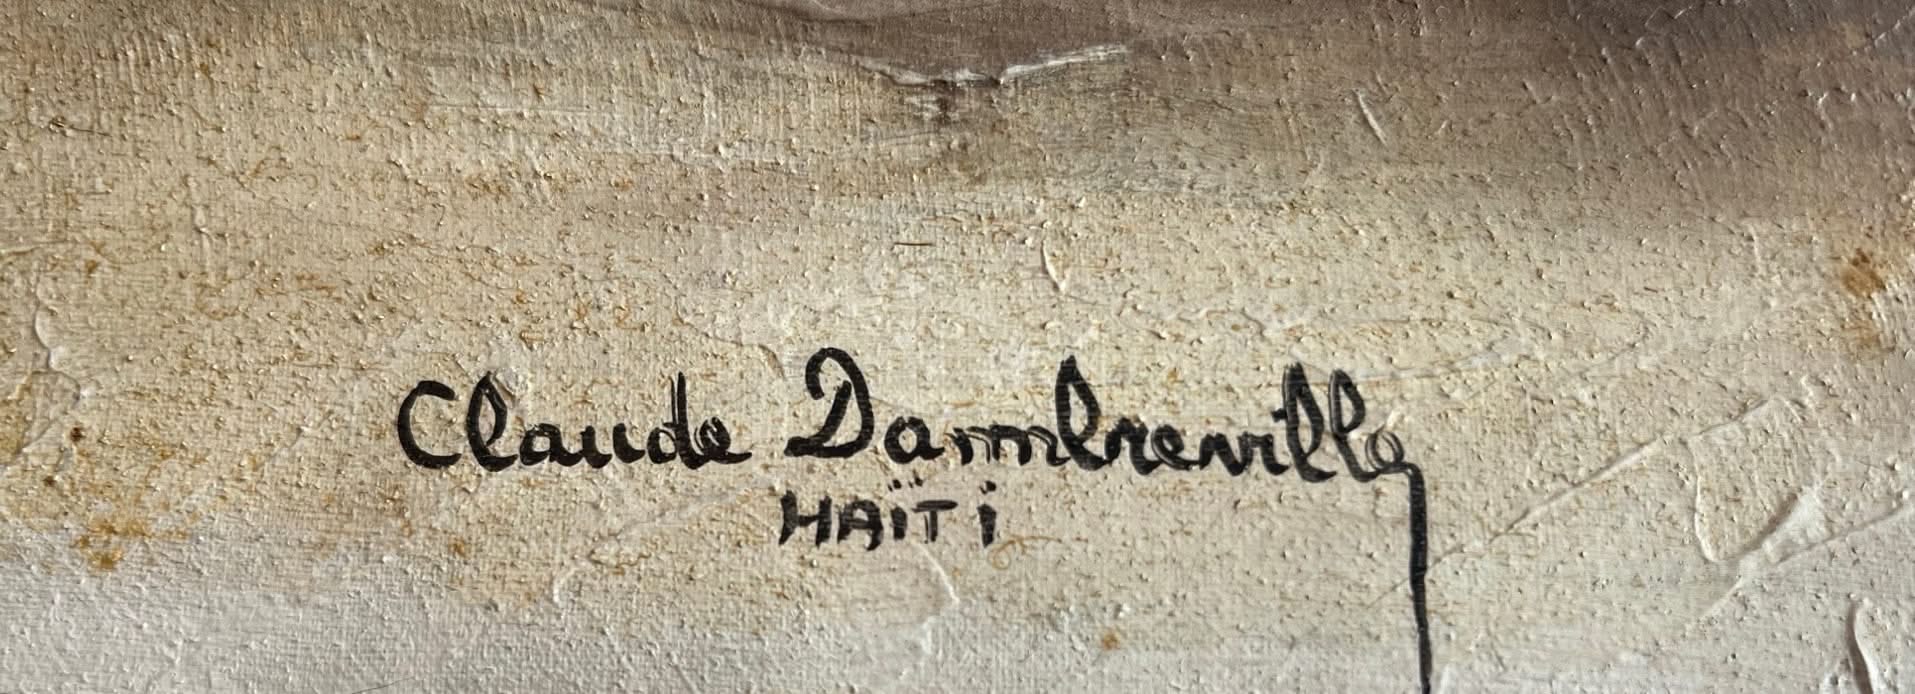 Claude Dambreville
HAÏTi